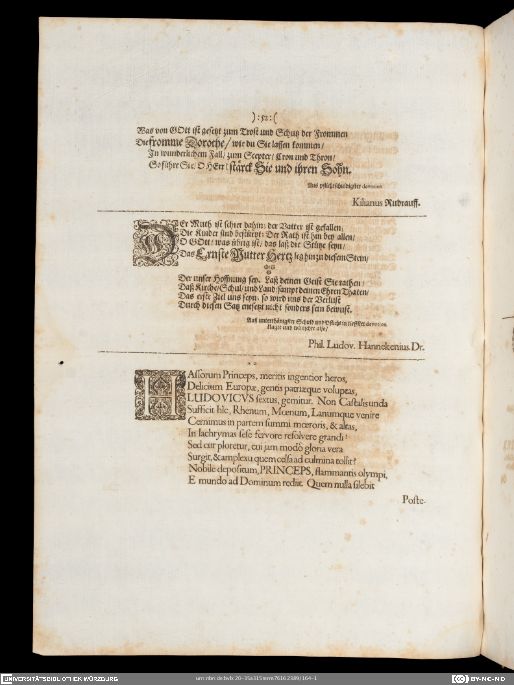 ):52:(
Was von GOtt ist gesetzt zum Trost und Schutz der Frommen
Die fromme Dorothe/ wie du Sie lassen kommen/
In wunderlichem Fall/ zum Scepter/ Cron und Thron/
So führe Sie/ O HErr/ stärck Sie und ihren Sohn.
Aus pflichtschuldigster devotion
Kilianus Rudrauff.
DEr Muth ist schier dahin: der Vatter ist gefallen.
Die Kinder sind bestürtzt: Der Rath ist
O GOtt/ was übrig ist/ das laß die Stütze seyn/
Das Ernste Mutter Hertz leg hin zu diesem Stein/
Der unser Hoffnung sey. Laß deinen Geist Sie rathen/
Daß Kirche/ Schul/ und Land sampt deinen Ehren Thaten/
Das erste Ziel uns seyn. so wird uns der Verlust
Durch diesen Satz ersetzt nicht sonders seyn bewust.
Aus unterthänigster Schuld und Pflicht in tieffster devotion
Phil. Ludov. Hannekenius. Dr.
HAssorum Princeps, meritis ingentior heros,
Delicium Europæ, gentis patriæque voluptas,
LUDOVICVS sextus, gemitur. Non Castalis unda
Sufficit hîc, Rhenum, Mœnum, Lanumque venire
Cernimus in partem summi mœroris, & altas,
In lachrymas sese fervore resolvere grandi!
Sed cur ploretur, cui jam modò gloria vera
Surgit, & amplexu quem celsa ad culmina tollit?
Nobile depositum, PRINCEPS, flammantis olympi,
E mundo ad Dominum rediit. Quem nulla silebit
Poste-
UNIVERSITÄTSBIBLIOTHEK WÜRZBURG
164-1
BY-NC-ND